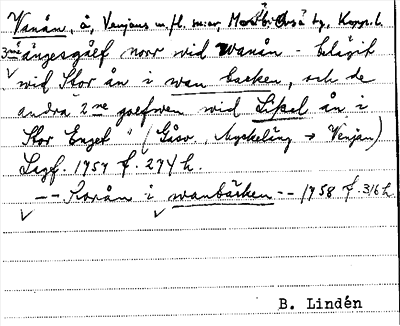 Vanån, å, Venjans m. fl. snar, Mora o. Orsa tg, Kopp. l.
3ne ängesgålf norr wid wanån - belägit
wid Stor ån i wan backen, och de
andra 2ne golfwen wid Lissel ån i
Stor Enget" (Gåsv, Myckeläng → Venjan)
Lagf. 1757 f. 274 h.
-- Korån i wanbäcken -- 1758 f. 316 h.
B. Lindén